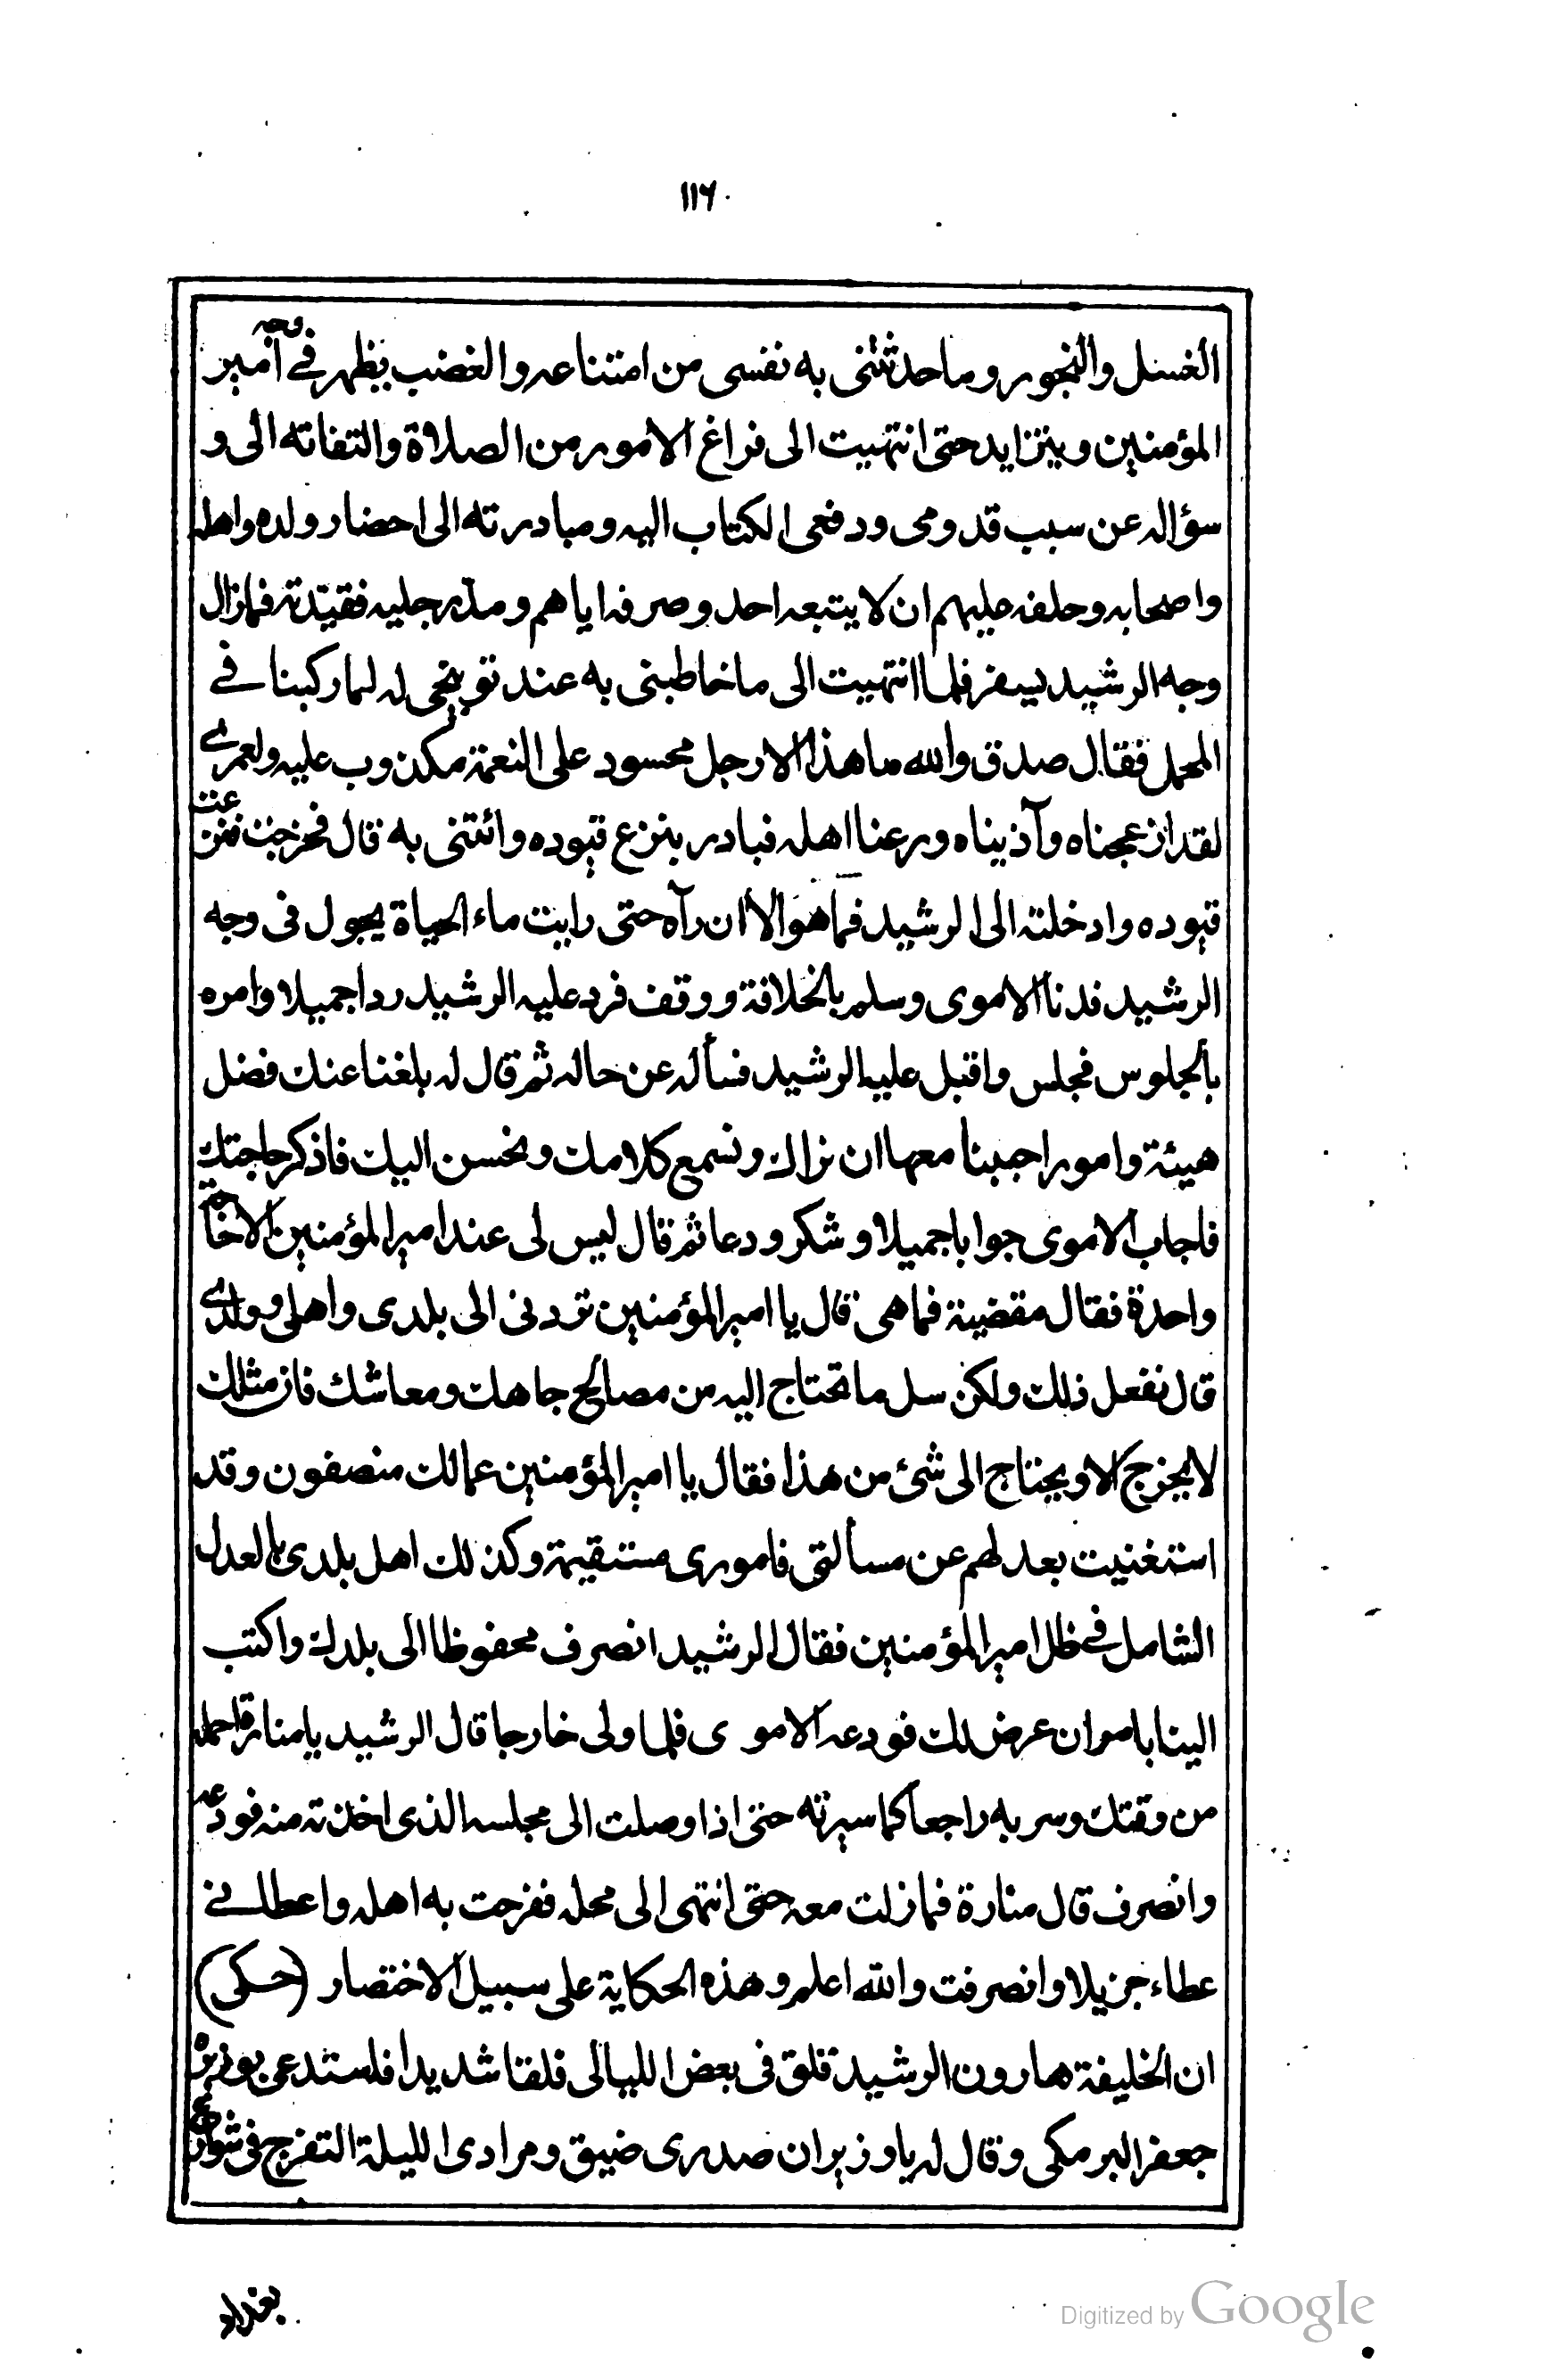 ١١٦
الغسل والبخور وما حدثتنى به نفسى من امتناعه والغضب يظهر فے وجه امير
المؤمنين ويتزايد حتى انتهيت الى فراغ الاموى من الصلاة والتفاته الى و
سؤاله عن سبب قدومى ودفعى الكتاب اليه ومبادرته الى احضار ولده واهله
واصحابه وحلفه عليهم ان لا يتبعه احد وصرفه اياهم ومد رجليه فقيدته فما زال
وجه الرشيد يسفر فلما انتهيت الى ما خاطبنى به عند توبيخى له لما ركبنا فے
المحمل فقال صدق والله ما هذا الا رجل محسود على النعمة مكذوب عليه ولعمرے
لقد ازعجناه وآذيناه ورعنا اهله فبادر بنزع قيوده وائتنى به قال فخرجت فنزعت
قيوده وادخلته الى الرشيد فما هو الا ان رآه حتى رايت ماء الحياة يجول فى وجه
الرشيد فدنا الاموى وسلم بالخلافة ووقف فرد عليه الرشيد ردا جميلا وامره
بالجلوس فجلس واقبل عليه الرشيد فسأله عن حاله ثم قال له بلغنا عنك فضل
هيئة وامور احببنا معها ان نراك ونسمع كلامك ونحسن اليك فاذكر حاجتك
فاجاب الاموى جوابا جميلا وشكر ودعا ثم قال ليس لى عند امير المؤمنين الا حاجة
واحدة فقال مقضية فما هى قال يا امير المؤمنين تردنى الى بلدى واهلى وولدے
قال نفعل ذلك ولكن سل ما تحتاج اليه من مصالح جاهك ومعاشك فان مثلك
لا يخرج الا ويحتاج الى شئ من هذا فقال يا امير المؤمنين عمالك منصفون وقد
استغنيت بعدلهم عن مسألتى فامورى مستقيمة وكذلك اهل بلدى بالعدل
الشامل فے ظل امير المؤمنين فقال الرشيد انصرف محفوظا الى بلدك واكتب
الينا بامر ان عرض لك فودعه الاموى فلما ولى خارجا قال الرشيد يا منارة احمله
من وقتك وسر به راجعا كما سيرته حتى اذا وصلت الى مجلسه الذى اخذته منه فودعه
وانصرف قال منارة فما زلت معه حتى انتهى الى محله ففرحت به اهله واعطانے
عطاء جزيلا وانصرفت والله اعلم وهذه الحكاية على سبيل الاختصار (حكى)
ان الخليفة هارون الرشيد قلق فى بعض الليالى قلقا شديدا فاستدعى بوزيره
جعفر البرمكى وقال له يا وزير ان صدرى ضيق ومرادى الليلة التفرج فى شوارع
بغداد
Digitized by Google